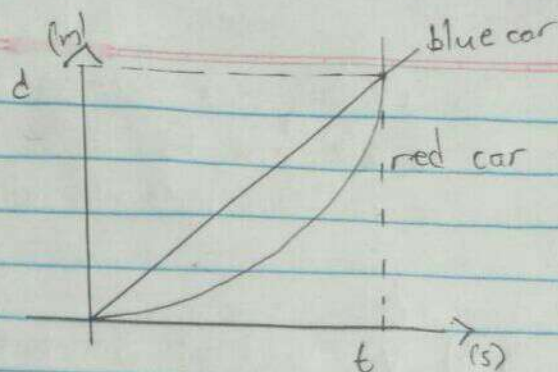 (m)
blue car
d
red car
t
(s)